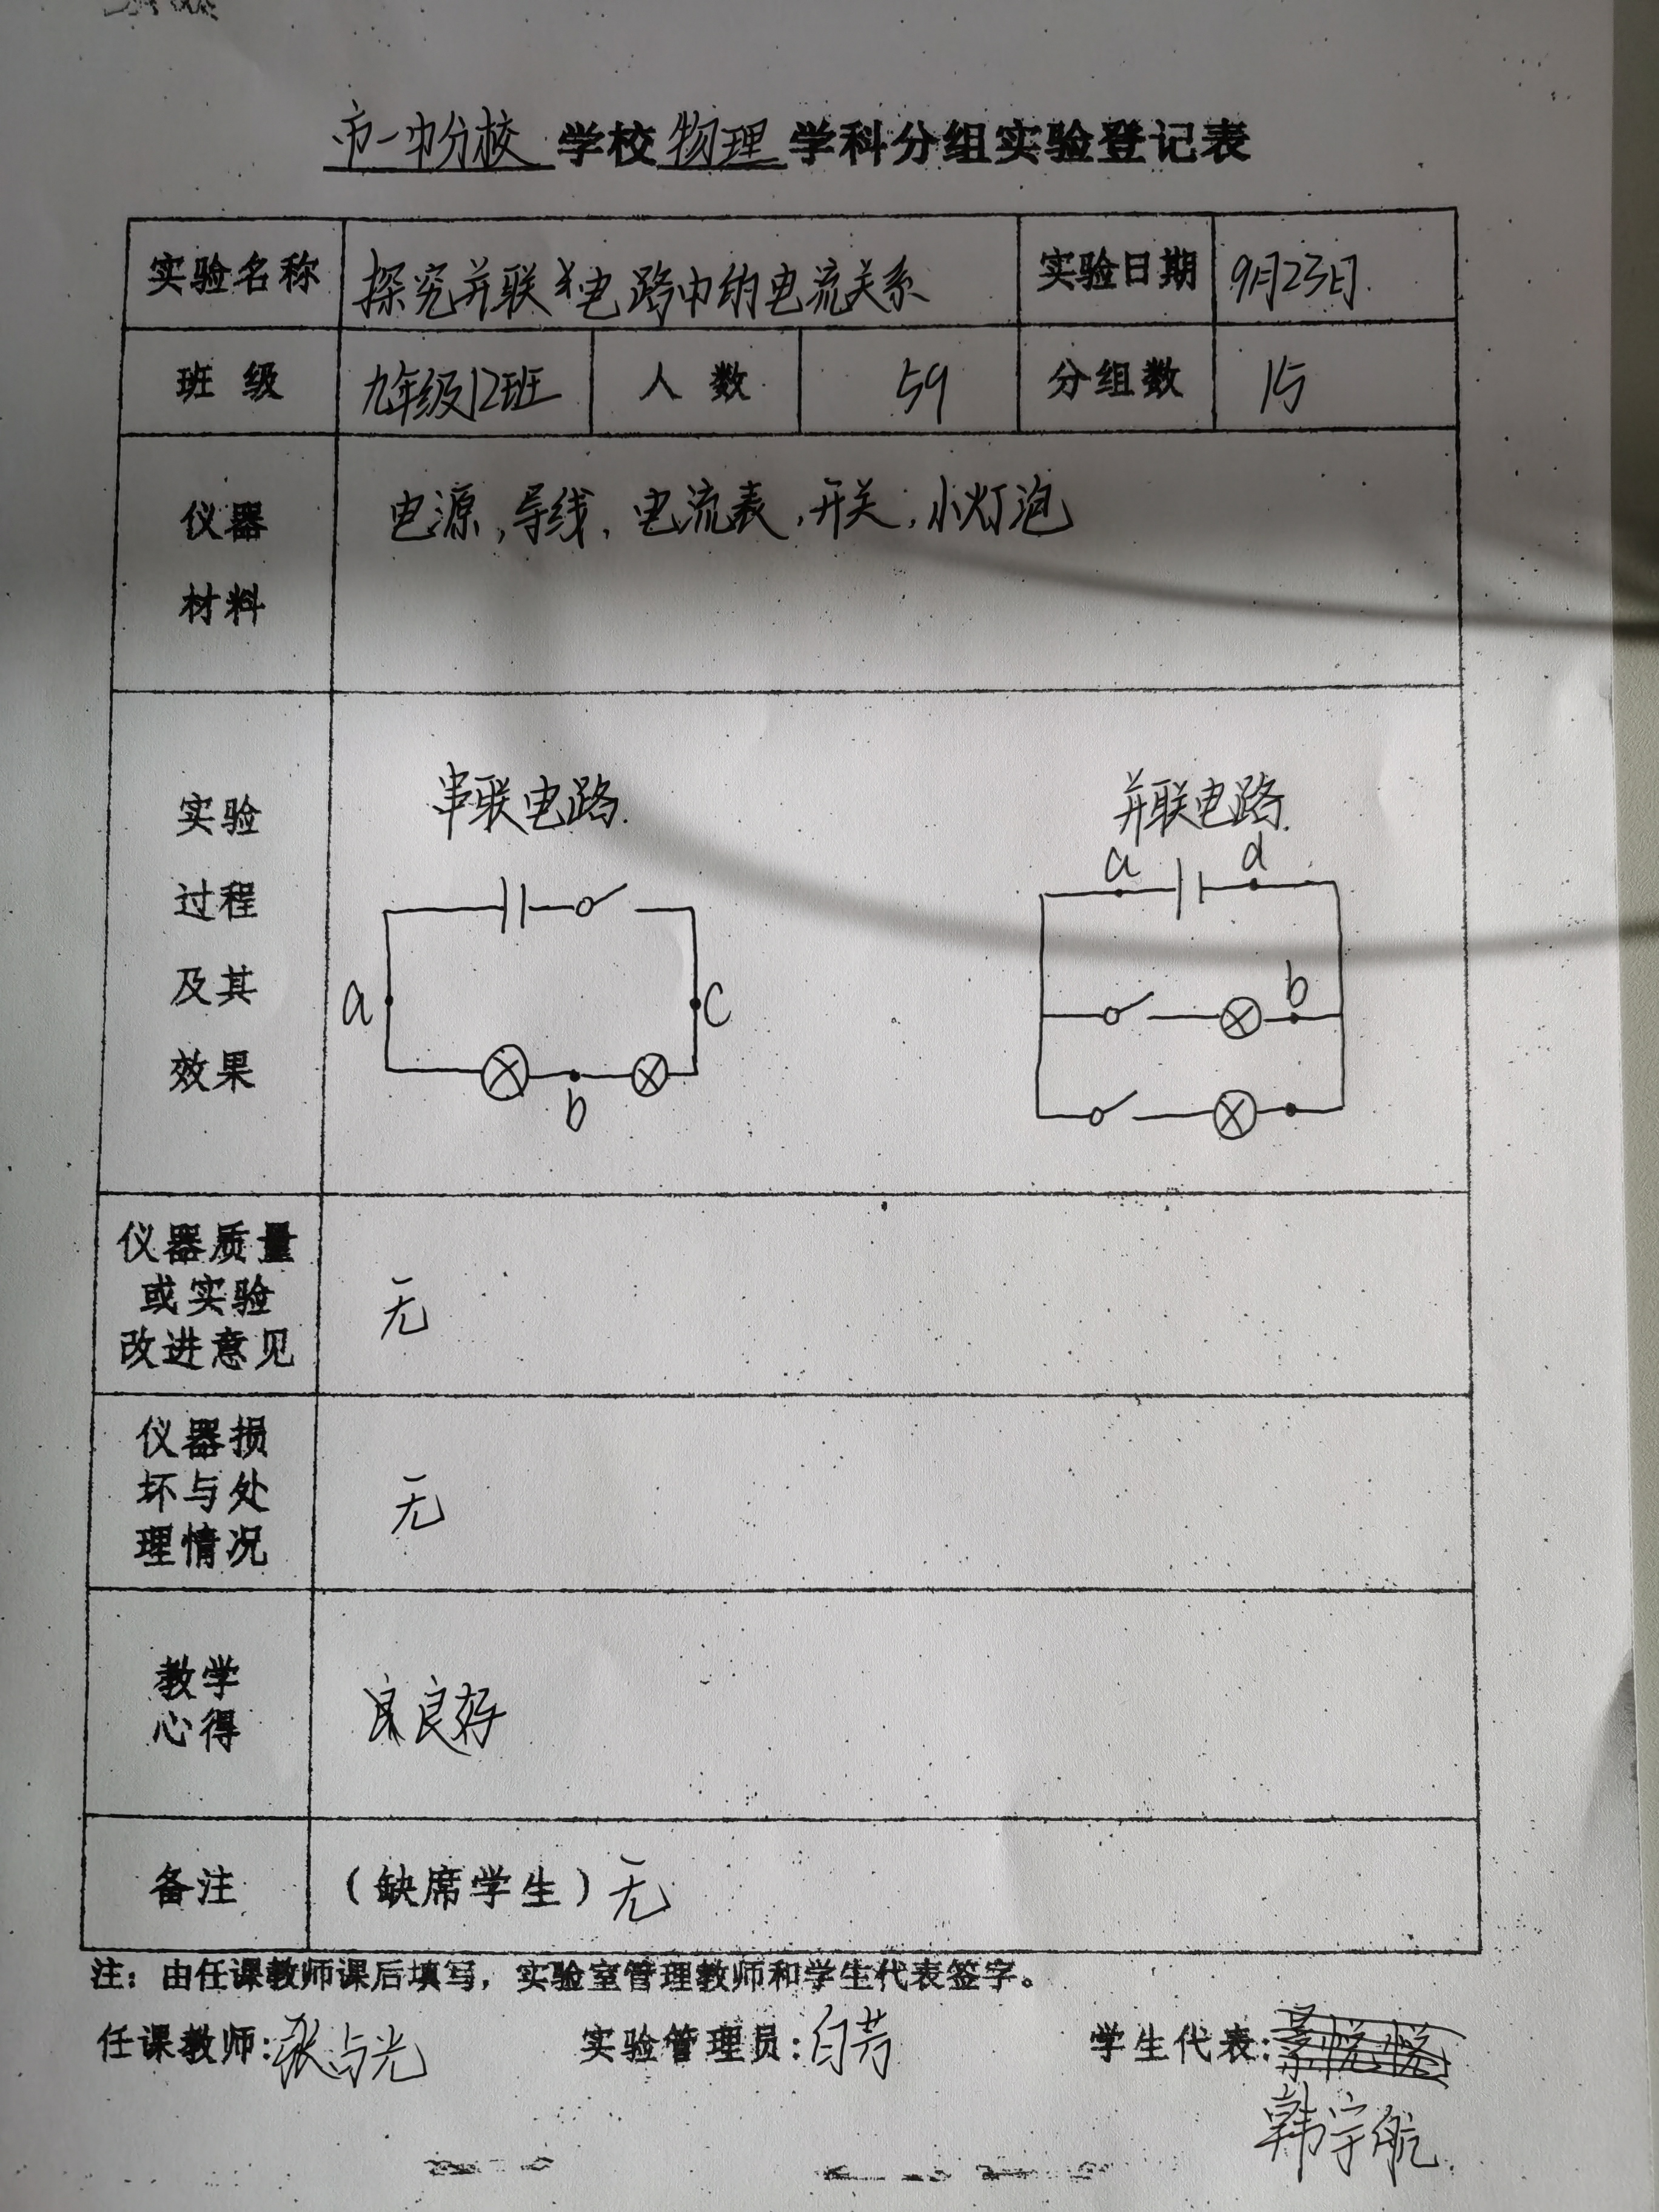 市一中分校 学校 物理 学科分组实验登记表
实验名称 探究并联电路中的电流关系 实验日期 9月23日.
班 级 九年级12班 人 数 59 分组数 15
仪器 电源,导线,电流表,开关,小灯泡
材料
串联电路. 并联电路.
实验
过程
及其
效果
a d
a c b
b
仪器质量
或实验
改进意见
无
仪器损
坏与处
理情况
无
教学
心得
良好
备注 (缺席学生)无
注：由任课教师课后填写，实验室管理教师和学生代表签字。
任课教师:张与光 实验管理员:白芳 学生代表:
韩宇航.